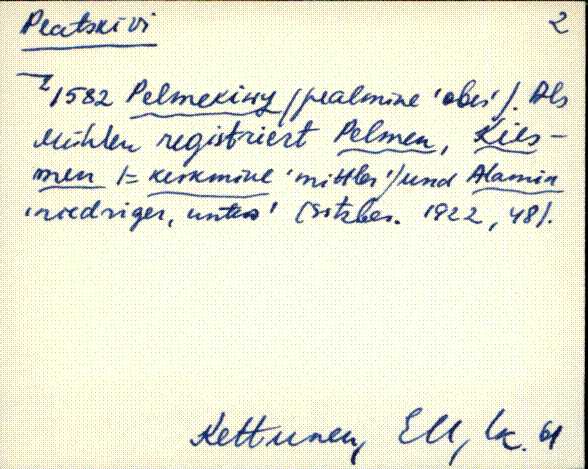 Peatskivi 2
1582 Pelmekiwy (pealmine 'ober'). Als
Mühlen registriert Pelmen, Kies-
men (= keskmine 'mittler') und Alamin
'niedriger, unter' (Sitzber. 1922, 48).
Kettunen, EU, lk. 61